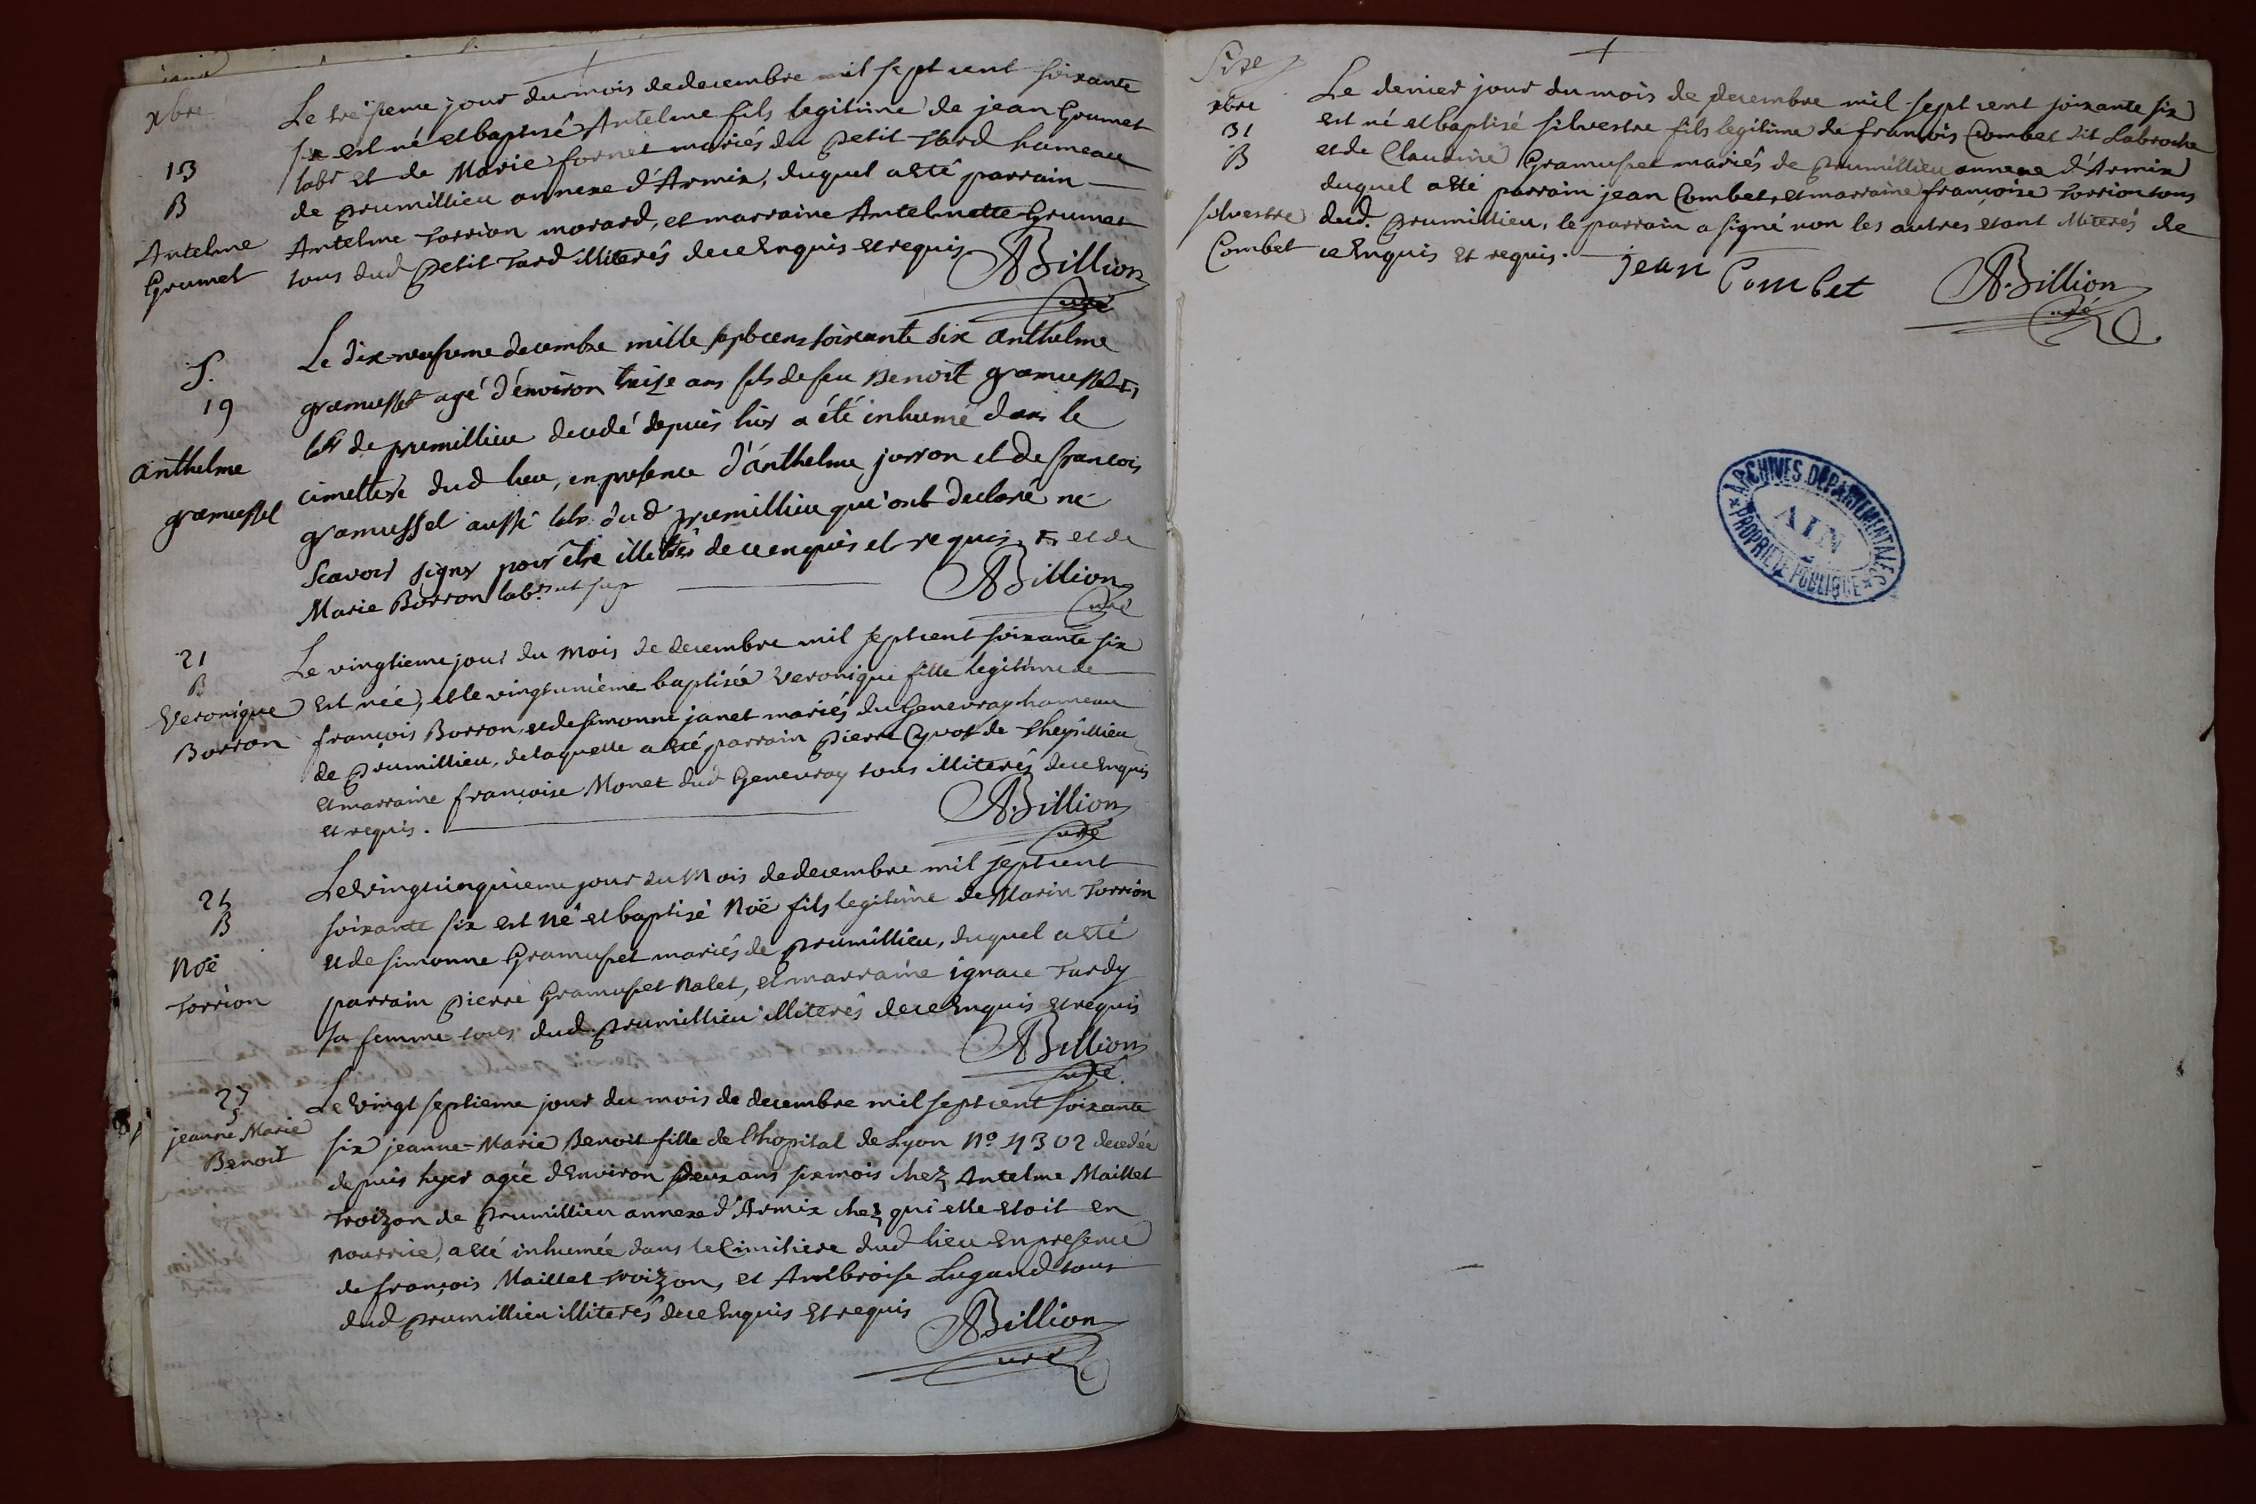 xbre
13
B
Antelme
Grumet
Le treiseme jour du mois de decembre mil sept cent soixante
six est né et baptisé Antelme fils legitime de jean Grumet
labr et de Marie fornet mariés du petit Tard hameau
de prumillieu annexe d'Armix, duquel a eté parrain
Antelme Torrion morard, et marraine Antelmette Grumet
tous dud petit Tard illiterés de ce Enquis et requis
ABillion
curé
S.
19
anthelme
gramusset
Le dix-neufieme decembre mille septcens soixante six anthelme
gramusset agé d'énviron treize ans fils de feu Benoit gramusset
labr de prumillieu decedé depuis hier a été inhumé dans le
cimettere dud lieu, en presence d'ánthelme jorron et de francois
gramusset aussi labr dud prumillieu qui ont declaré ne
scavoir signer pour être illitrés de ce enquis et requis. et de
Marie Borron labr ut sup
ABillion
curé
21
B
Veronique
Borron
Le vingtieme jour du mois de decembre mil sept cent soixante six
est née, et le vingt unième baptisée Veronique fille legitime de
françois Borron, et de simonne janet mariés du Genevray hameau
de prumillieu, de laquelle a eté parrain pierre Cyvot de Theysillieu
et marraine françoise Monet dud Genevray tous illiterés de ce Enquis
et requis.
ABillion
curé
25
B
Noë
Torrion
Le vingt cinquieme jour du Mois de decembre mil sept cent
soixante six est né et baptisé Noë fils legitime de Marin Torrion
et de simonne Gramuset mariés de prumillieu, duquel a eté
parrain pierre Gramuset Nalet, et marraine ignace Tardy
sa femme tous dud. prumillieu illiterés de ce Enquis et requis
ABillion
curé
27
S
jeanne Marie
Benoit
Le Vingt septieme jour du mois de decembre mil sept cent soixante
six jeanne-Marie Benoit fille de l'hopital de Lyon No 4302 decedée
depuis hyer agée d'Environ deux ans six mois chez Antelme Maillet
Troizon de prumillieu annexe d'Armix chez qui elle etoit en
nourrice, a eté inhumée dans le Cimitiere dud lieu En presence
de françois Maillet troizon, et Ambroise Lugand tous
dud prumillieu illiterés de ce Enquis et requis
ABillion
curé
Size
xbre
31
B
silvestre
Combet
Le dernier jour du mois de decembre mil sept cent soixante six
est né et baptisé silvestre fils legitime de françois Combet dit Labroche
et de Claudine Gramuset mariés de prumillieu annexe d'Armix
duquel a eté parrain jean Combet, et marraine françoise Torrion tous
dud. prumillieu, le parrain a signé non les autres etant illiterés de
ce Enquis et requis.
jean Combet
ABillion
curé
ARCHIVES DEPARTEMENTALES
AIN
PROPRIETE PUBLIQUE